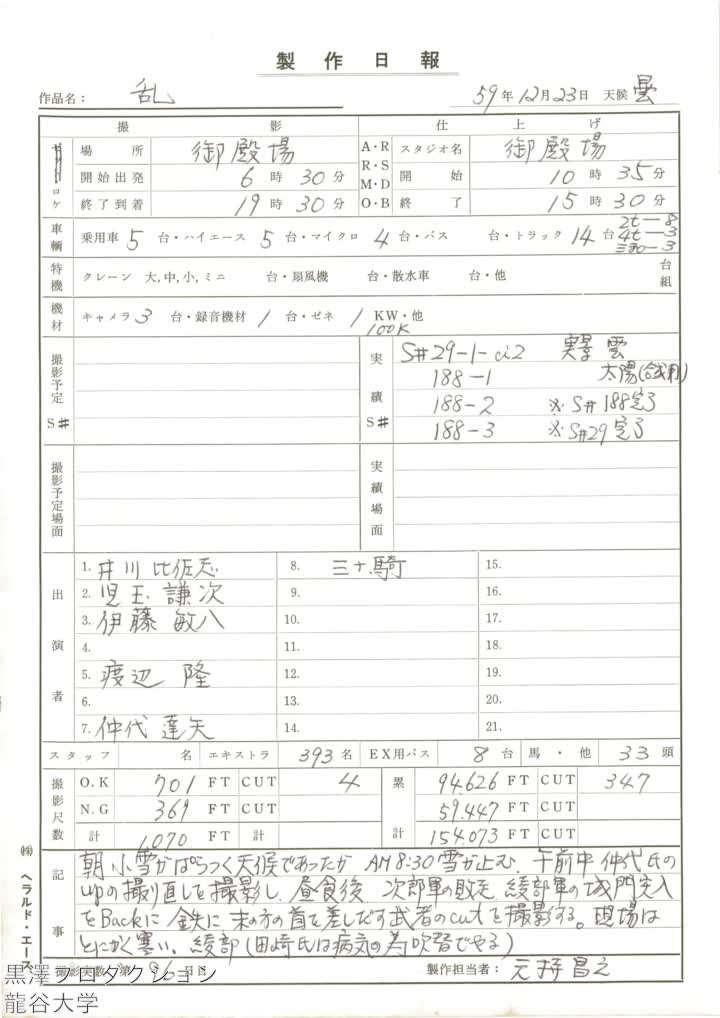 製作日報
作品名: 乱 59年12月23日 天候 曇
撮影 仕上げ
ロケ 場所 御殿場 A・R R・S M・D O・B スタジオ名 御殿場
開始出発 6時30分 開始 10時35分
終了到着 19時30分 終了 15時30分
車輌 乗用車 5 台・ハイエース 5 台・マイクロ 4 台・バス 台・トラック 14 台 2t-8 4t-3 -3
特機 クレーン 大,中,小,ミニ 台・扇風機 台・散水車 台・他 台組
機材 キャメラ 3 台・録音機材 1 台・ゼネ 1 KW・他 100K
撮影予定 S# 実績 S# S#29-1-ci2 実景 雲
188-1 太陽(合成用)
188-2 ※S#188完了
188-3 ※S#29完了
撮影予定場面 実績場面
出演者
1. 井川比佐志 8. 三十騎 15.
2. 児玉謙次 9. 16.
3. 伊藤敏八 10. 17.
4. 11. 18.
5. 渡辺隆 12. 19.
6. 13. 20.
7. 仲代達矢 14. 21.
スタッフ 名 エキストラ 393名 EX用バス 8台 馬・他 33頭
撮影尺数 O.K 701 FT CUT 4 累計 94.626 FT CUT 347
N.G 369 FT CUT 59.447 FT CUT
計 1070 FT 計 154.073 FT CUT
記事 朝小雪がぱらつく天候であったが AM8:30雪が止む。午前中仲代氏の
upの撮り直しを撮影し、昼食後 次郎軍の敗走 綾部軍の城門突入
をBackに 鉄に 末の方の首を差しだす武者のcutを撮影する。現場は
とにかく寒い。綾部(田崎氏は病気の為吹替でやる)
撮影実数 第 96 日目 製作担当者: 元持昌之
㈱ヘラルド・エース
黒澤プロダクション
龍谷大学